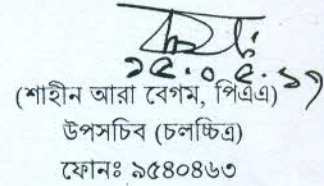 ১৫.০৫.১৭
(শাহীন আরা বেগম, পিএএ)
উপসচিব (চলচ্চিত্র)
ফোনঃ ৯৫৪০৪৬৩